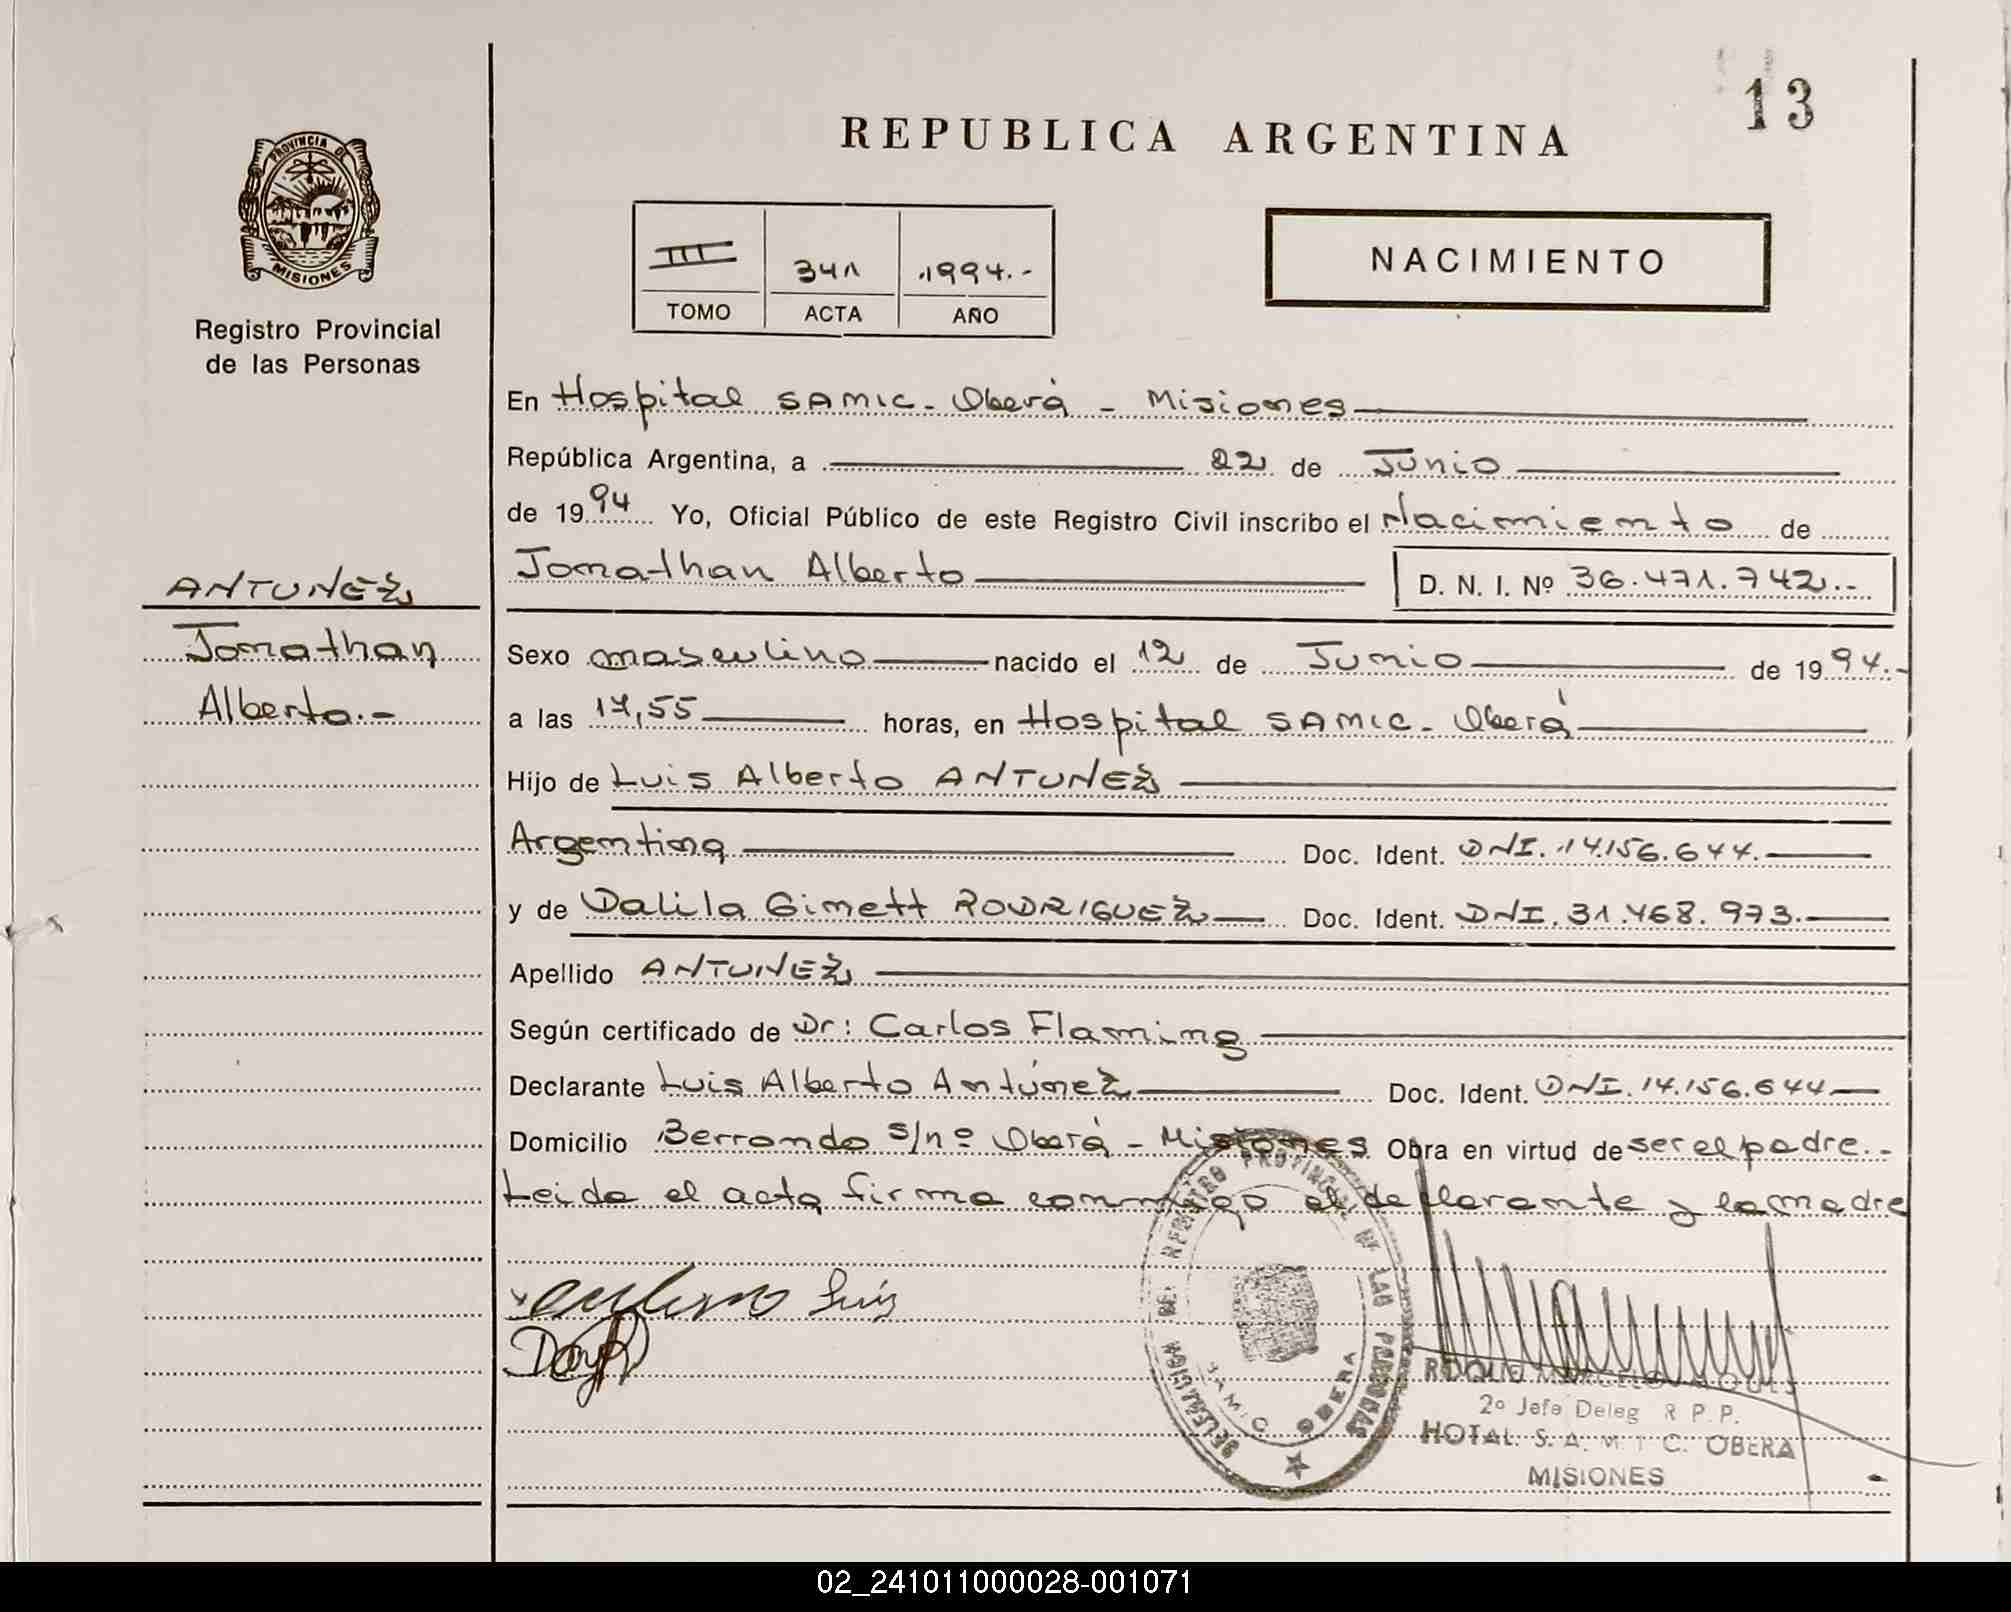 13
REPUBLICA ARGENTINA
PROVINCIA DE
MISIONES
Registro Provincial
de las Personas
III 341 1994.-
TOMO ACTA AÑO
NACIMIENTO
En Hospital SAMIC - Oberá - Misiones
República Argentina, a 22 de Junio
de 1994 Yo, Oficial Público de este Registro Civil inscribo el Nacimiento de
Jonathan Alberto D. N. I. Nº 36.471.742.-
ANTUNEZ
Jonathan
Alberto.-
Sexo masculino nacido el 12 de Junio de 1994.-
a las 17,55 horas, en Hospital SAMIC - Oberá
Hijo de Luis Alberto ANTUNEZ
Argentina Doc. Ident. DNI. 14.156.644.
y de Dalila Gimett RODRIGUEZ Doc. Ident. DNI. 31.468.973.
Apellido ANTUNEZ
Según certificado de Dr: Carlos Flaming
Declarante Luis Alberto Antúnez Doc. Ident. DNI. 14.156.644
Domicilio Berrondo s/nº Oberá - Misiones Obra en virtud de ser el padre.-
Leida el acta firma conmigo el declarante y la madre
Luis
DELEGACION DEL REGISTRO PROVINCIAL DE LAS PERSONAS
SAMIC OBERA
ROQUE
2º Jefe Deleg R P.P.
HOTAL. S. A. M I C. OBERA
MISIONES
02_241011000028-001071